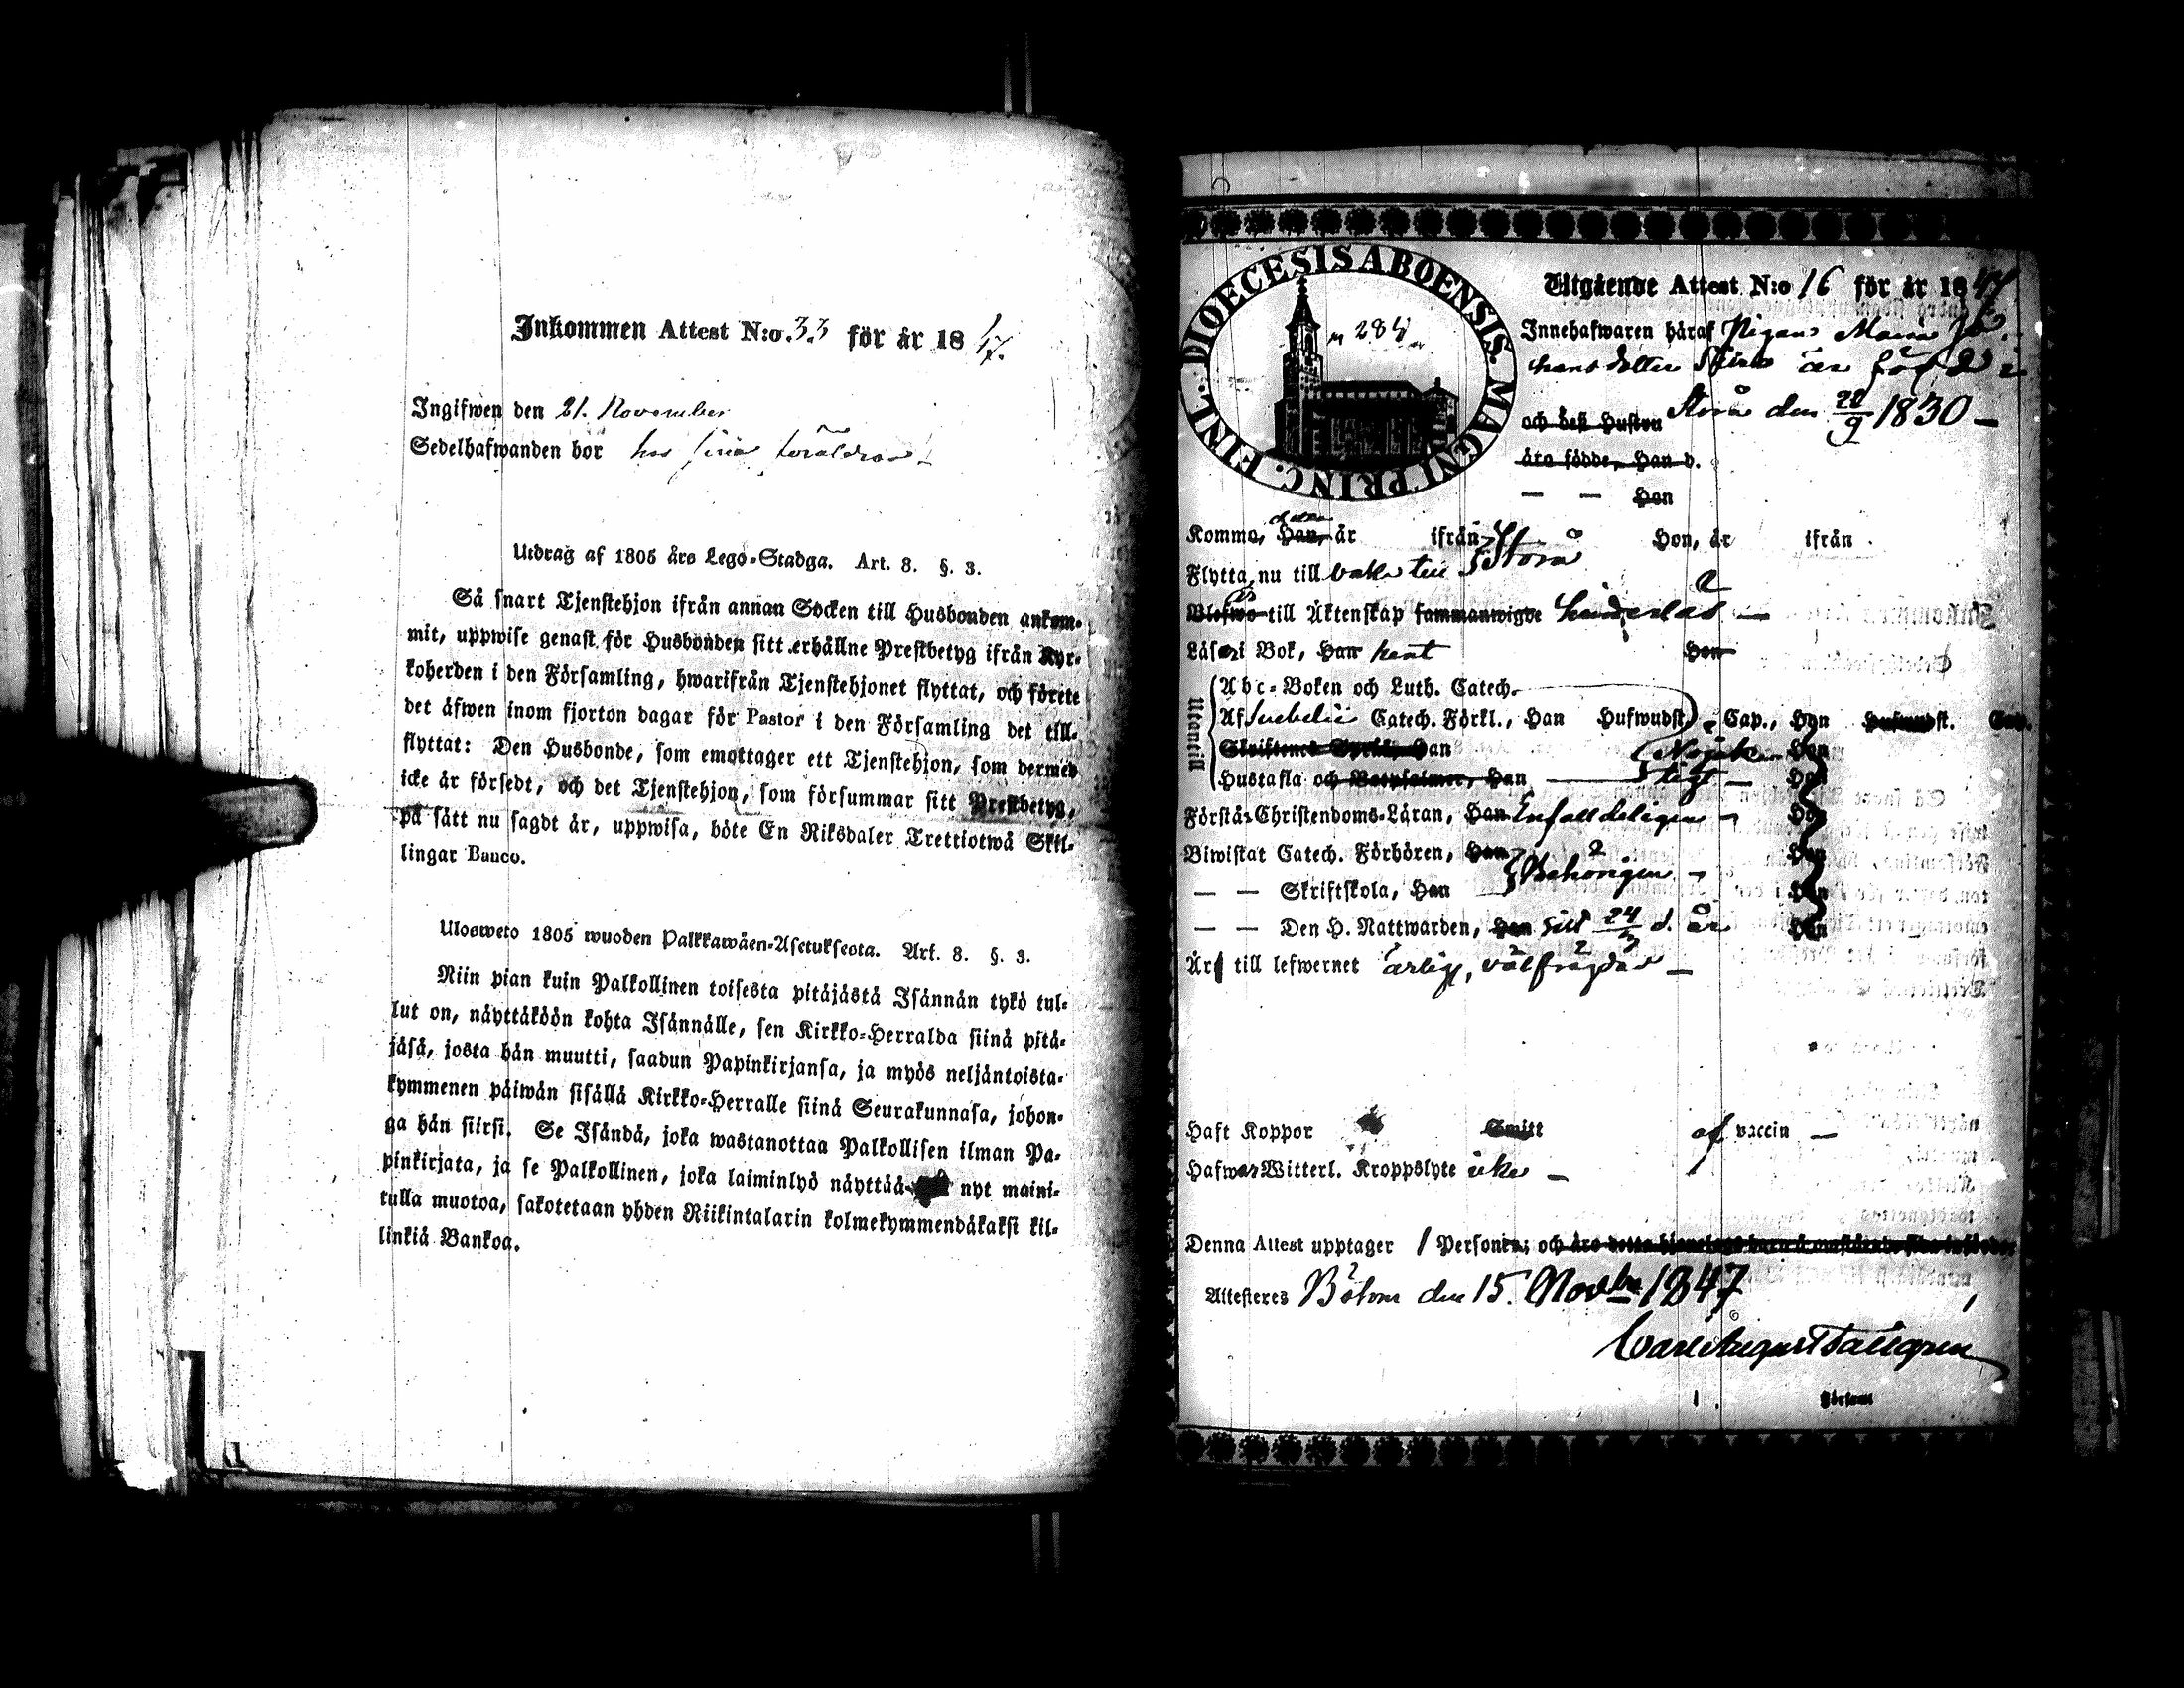 Inkommen Attest N:o. 33 för år 1847.
Ingifwen den 21. November
Sedelhafwanden bor hos sina föräldrar
Utdrag af 1805 års Lego-Stadga. Art. 8. §. 3.
Så snart Tjenstehjon ifrån annan Socken till Husbonden ankom-
mit, uppwise genast för Husbonden sitt erhållne Prestbetyg ifrån Kyr-
koherden i den Församling, hwarifrån Tjenstehjonet flyttat, och förete
det äfwen inom fjorton dagar för Pastor i den Församling det till-
flyttat: Den Husbonde, som emottager ett Tjenstehjon, som dermed
icke är försedt, och det Tjenstehjon, som försummar sitt Prestbetyg,
på sätt nu sagdt är, uppwisa, böte En Riksdaler Trettiotwå Skil-
lingar Banco.
Ulosweto 1805 wuoden Palkkawäen-Asetuksesta. Art. 8. §. 3.
Niin pian kuin Palkollinen toisesta pitäjästä Isännän tykö tul-
lut on, näyttäköön kohta Isännälle, sen Kirkko-Herralda siinä pitä-
jäsä, josta hän muutti, saadun Papinkirjansa, ja myös neljäntoista-
kymmenen päiwän sisällä Kirkko-Herralle siinä Seurakunnasa, johon-
ga hän siirsi. Se Isändä, joka wastanottaa Palkollisen ilman Pa-
pinkirjata, ja se Palkollinen, joka laiminlyö näyttää nyt maini-
tulla muotoa, sakotetaan yhden Riikintalarin kolmekymmendäkaksi kil-
linkiä Bankoa.
DIOECESIS ABOENSIS. MAGNI PRINC. FINL.
284
Utgående Attest N:o 16 för år 1847
Innehafwaren häraf Pigan Maria Jo-
hansdotter är född i
och dess Hustru Storå den 22/9 1830
äro födde, Han d.
— — Hon
Komma, Han, år ifrån Storå Hon, år ifrån
Flytta nu till Storå
till Äktenskap sammanwigde hinderlös
Läser i Bok, Han Hon
Utantill
Abc-Boken och Luth. Catech.
Af Svebelii Catech. Förkl., Han Hufwudst. Cap., Hon Hufwudst. Cap.
Skriftenes Språk, Han Nöjak- Hon
Hustafla och Botpsalmer, Han ligt Hon
Förstår Christendoms-Läran, Han Enfalldeligen Hon
Biwistat Catech. Förhören, Han Behörigen Hon
— — Skriftskola, Han Hon
— — Den H. Nattwarden, Han sist d. år Hon
Är till lefwernet ärlig, välfrägdad
Haft Koppor Smitt af vaccin
Hafwer Witterl. Kroppslyte icke
Denna Attest upptager 1 Person
Attesteres Bötom den 15. Novbr 1847
Carl August Tallgren
Församl